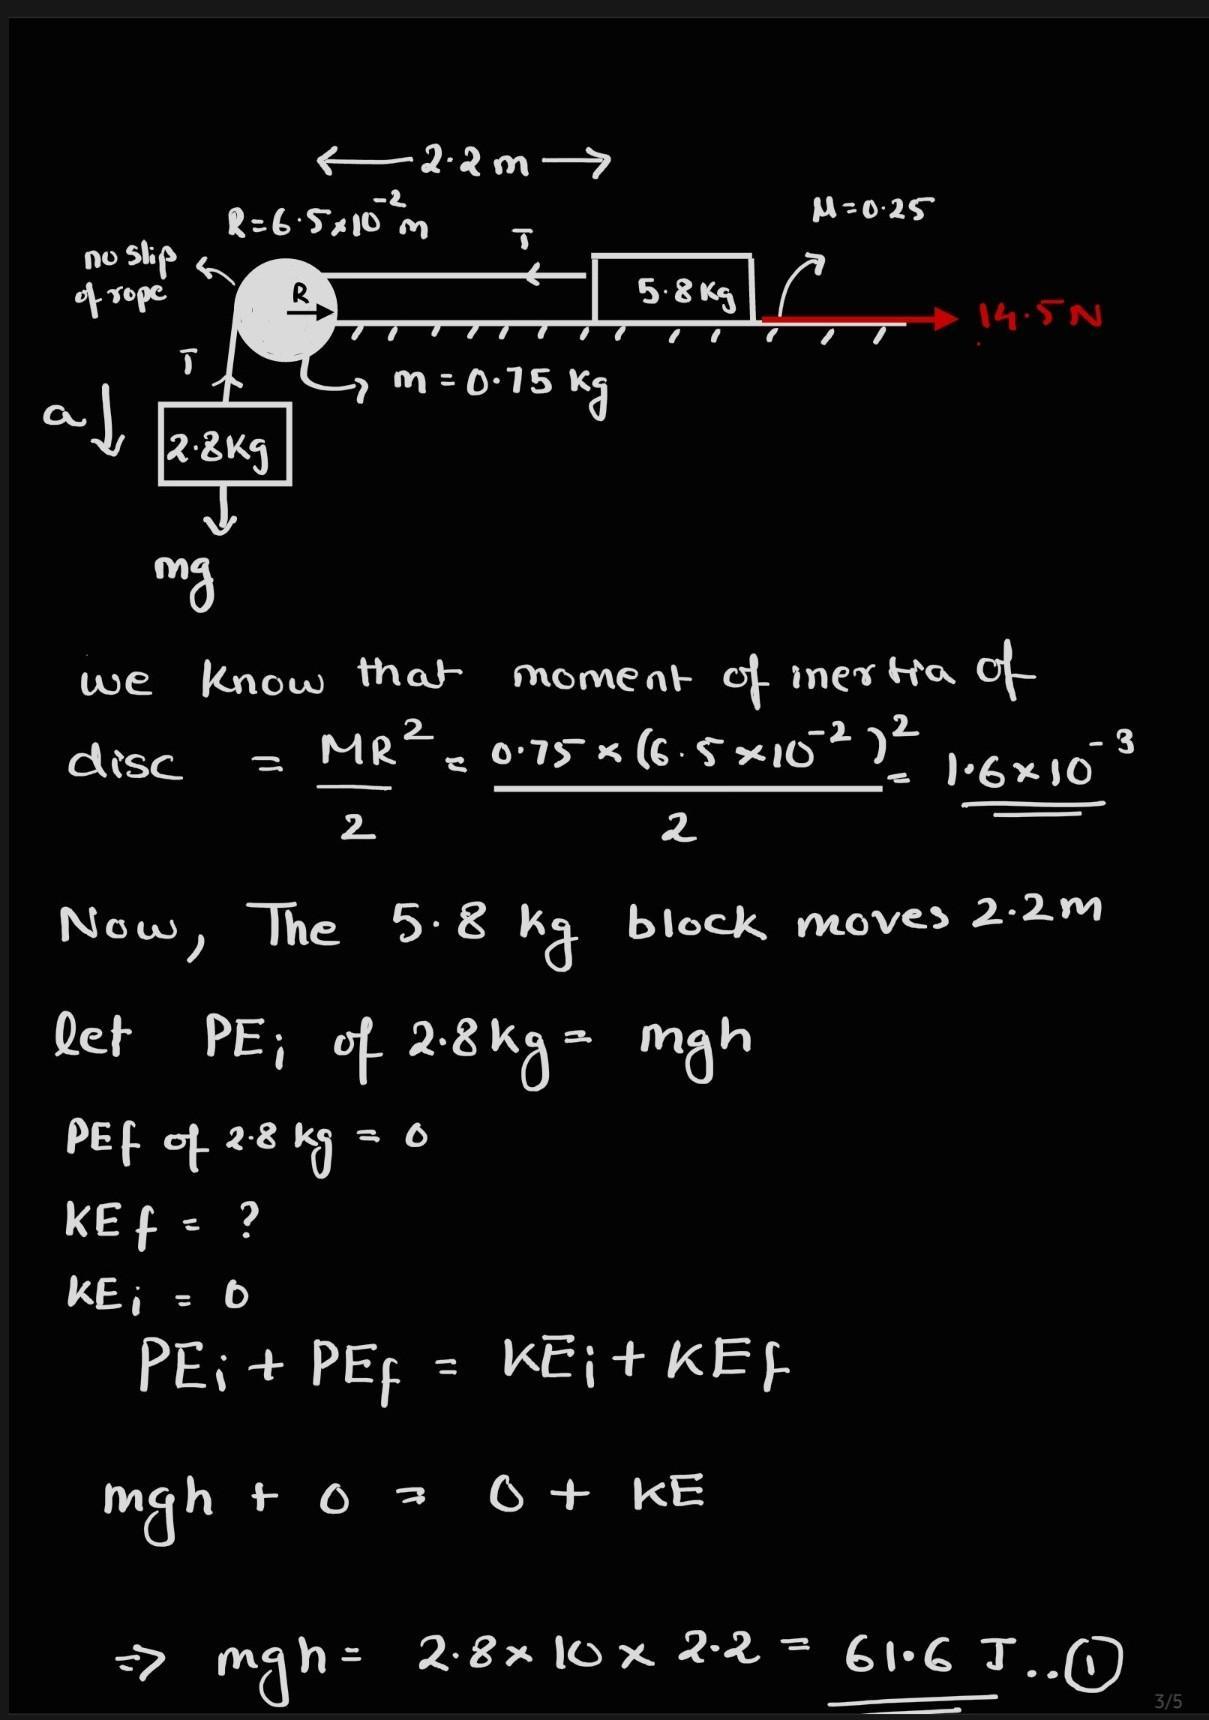 2.2 m
R=6.5×10⁻² m
μ=0.25
no slip
of rope
T
R
5.8 Kg
14.5 N
T
m = 0.75 kg
a
2.8Kg
mg
we know that moment of inertia of
disc = MR²/2 = 0.75 × (6.5 ×10⁻²)²/2 = 1.6×10⁻³
Now, The 5.8 kg block moves 2.2m
let PEi of 2.8kg = mgh
PEf of 2.8 kg = 0
KEf = ?
KEi = 0
PEi + PEf = KEi + KEf
mgh + 0 = 0 + KE
⇒ mgh = 2.8 × 10 × 2.2 = 61.6 J ..①
3/5